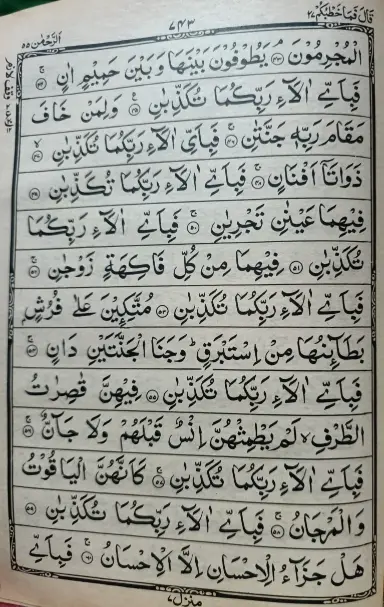 قَالَ فَمَا خَطْبُكُمْ ٢٧
٧٤٣
اَلرَّحْمٰن ٥٥
الْمُجْرِمُوْنَ ۘ ﴿٤٣﴾ يَطُوْفُوْنَ بَيْنَهَا وَبَيْنَ حَمِيْمٍ اٰنٍ ۚ ﴿٤٤﴾
فَبِاَيِّ اٰلَآءِ رَبِّكُمَا تُكَذِّبٰنِ ﴿٤٥﴾ وَلِمَنْ خَافَ
مَقَامَ رَبِّهٖ جَنَّتٰنِ ۚ ﴿٤٦﴾ فَبِاَيِّ اٰلَآءِ رَبِّكُمَا تُكَذِّبٰنِ ۙ ﴿٤٧﴾
ذَوَاتَآ اَفْنَانٍ ۚ ﴿٤٨﴾ فَبِاَيِّ اٰلَآءِ رَبِّكُمَا تُكَذِّبٰنِ ﴿٤٩﴾
فِيْهِمَا عَيْنٰنِ تَجْرِيٰنِ ۚ ﴿٥٠﴾ فَبِاَيِّ اٰلَآءِ رَبِّكُمَا
تُكَذِّبٰنِ ﴿٥١﴾ فِيْهِمَا مِنْ كُلِّ فَاكِهَةٍ زَوْجٰنِ ۚ ﴿٥٢﴾
فَبِاَيِّ اٰلَآءِ رَبِّكُمَا تُكَذِّبٰنِ ﴿٥٣﴾ مُتَّكِـِٕيْنَ عَلٰى فُرُشٍۭ
بَطَآىِٕنُهَا مِنْ اِسْتَبْرَقٍ ؕ وَجَنَا الْجَنَّتَيْنِ دَانٍ ۚ ﴿٥٤﴾
فَبِاَيِّ اٰلَآءِ رَبِّكُمَا تُكَذِّبٰنِ ﴿٥٥﴾ فِيْهِنَّ قٰصِرٰتُ
الطَّرْفِ ۙ لَمْ يَطْمِثْهُنَّ اِنْسٌ قَبْلَهُمْ وَلَا جَآنٌّ ۚ ﴿٥٦﴾
فَبِاَيِّ اٰلَآءِ رَبِّكُمَا تُكَذِّبٰنِ ۚ ﴿٥٧﴾ كَاَنَّهُنَّ الْيَاقُوْتُ
وَالْمَرْجَانُ ۚ ﴿٥٨﴾ فَبِاَيِّ اٰلَآءِ رَبِّكُمَا تُكَذِّبٰنِ ﴿٥٩﴾
هَلْ جَزَآءُ الْاِحْسَانِ اِلَّا الْاِحْسَانُ ۚ ﴿٦٠﴾ فَبِاَيِّ
منزل ٧